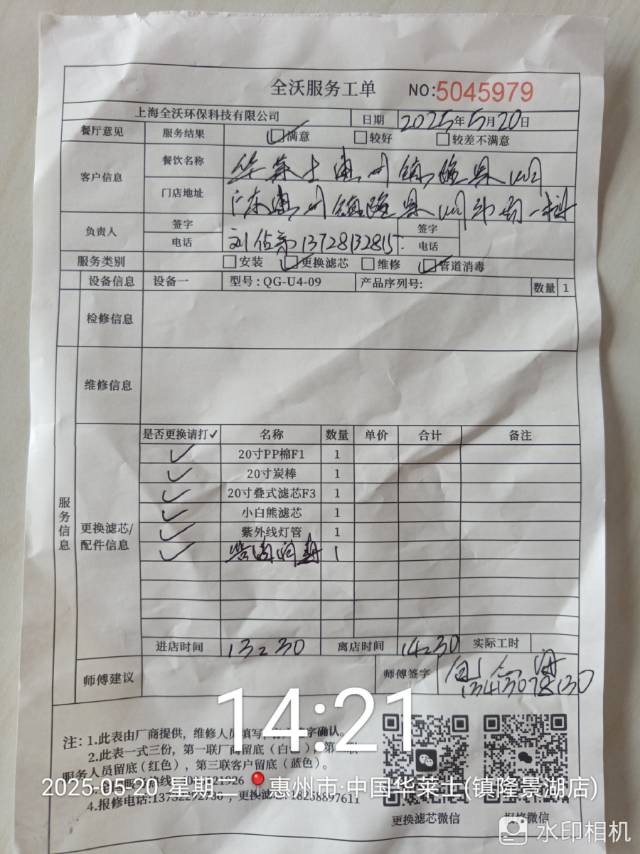 全沃服务工单 NO:5045979
上海全沃环保科技有限公司 日期 2025年5月20日
餐厅意见 服务结果 满意 较好 较差不满意
客户信息 餐饮名称 华莱士惠州镇隆景湖
门店地址 广东惠州镇隆景湖
负责人 签字 签字
电话 13728132815 电话
服务类别 安装 更换滤芯 维修 管道消毒
设备信息 设备一 型号: QG-U4-09 产品序列号: 数量 1
检修信息
维修信息
服务信息
更换滤芯/配件信息
是否更换请打✓ 名称 数量 单价 合计 备注
✓ 20寸PP棉F1 1
✓ 20寸炭棒 1
✓ 20寸叠式滤芯F3 1
✓ 小白熊滤芯 1
✓ 紫外线灯管 1
✓ 管道消毒 1
进店时间 13:30 离店时间 14:30 实际工时
师傅建议 师傅签字
13413078130
14:21
注: 1.此表由厂商提供, 维修人员填写, 字确认。
2.此表一式三份, 第一联厂商留底(白
服务人员留底(红色), 第三联客户留底(蓝色)。
2025-05-20 星期二 惠州市·中国华莱士(镇隆景湖店)
4.报修电话: 更换滤芯18258897611
更换滤芯微信 报修微信
水印相机